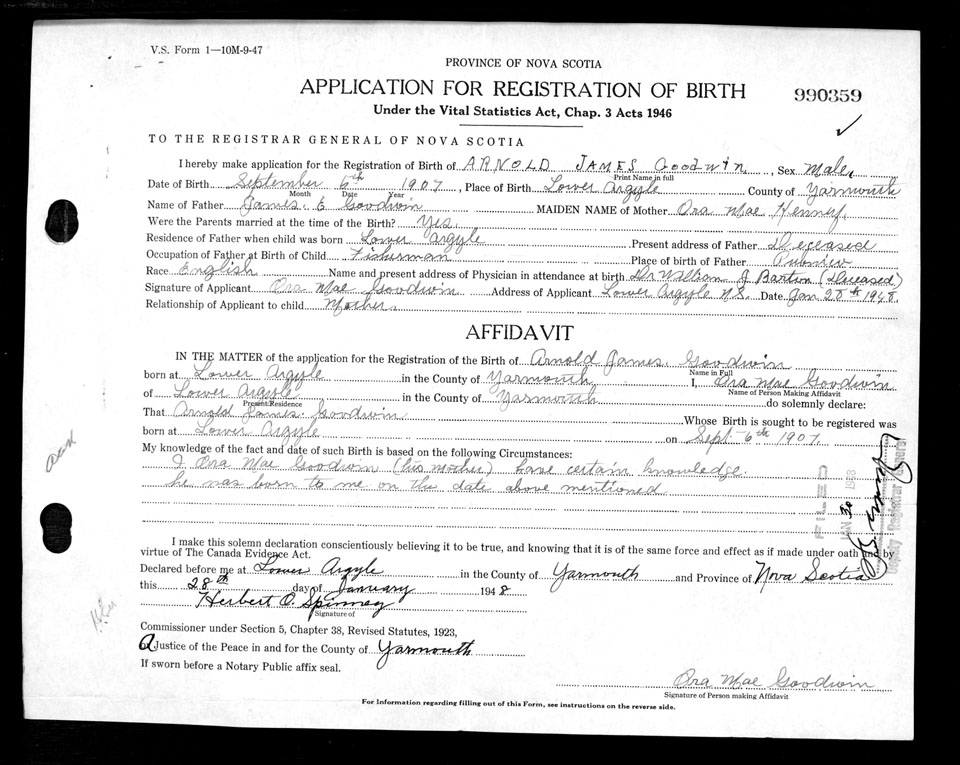 V.S. Form 1—10M-9-47
PROVINCE OF NOVA SCOTIA
APPLICATION FOR REGISTRATION OF BIRTH
990359
Under the Vital Statistics Act, Chap. 3 Acts 1946
TO THE REGISTRAR GENERAL OF NOVA SCOTIA
I hereby make application for the Registration of Birth of ARNOLD JAMES Goodwin, Sex Male,
Print Name in full
Date of Birth September 6th 1907, Place of Birth Lower Argyle County of Yarmouth
Month Date Year
Name of Father James. E Goodwin MAIDEN NAME of Mother Ora Mae
Were the Parents married at the time of the Birth? Yes.
Residence of Father when child was born Lower Argyle Present address of Father Deceased
Occupation of Father at Birth of Child Fisherman Place of birth of Father Pubnico
Race English Name and present address of Physician in attendance at birth Dr William J Barton (Deceased)
Signature of Applicant Ora Mae Goodwin Address of Applicant Lower Argyle N.S. Date Jan 28th 1948.
Relationship of Applicant to child Mother.
AFFIDAVIT
IN THE MATTER of the application for the Registration of the Birth of Arnold James. Goodwin
Name in Full
born at Lower Argyle in the County of Yarmouth I, Ora Mae Goodwin
Name of Person Making Affidavit
of Lower Argyle in the County of Yarmouth do solemnly declare:
Present Residence
That Arnold James. Goodwin Whose Birth is sought to be registered was
born at Lower Argyle on Sept 6th 1907
My knowledge of the fact and date of such Birth is based on the following Circumstances:
I Ora Mae Goodwin (his mother) have certain knowledge.
he was born to me on the date above mentioned
FILED
JAN 30
Deputy Registrar General
I make this solemn declaration conscientiously believing it to be true, and knowing that it is of the same force and effect as if made under oath and by
virtue of The Canada Evidence Act.
Declared before me at Lower Argyle in the County of Yarmouth and Province of Nova Scotia
this 28th day of January 1948
Herbert O. Spinney
Signature of
Commissioner under Section 5, Chapter 38, Revised Statutes, 1923,
A Justice of the Peace in and for the County of Yarmouth
If sworn before a Notary Public affix seal.
Ora Mae Goodwin
Signature of Person making Affidavit
For Information regarding filling out of this Form, see instructions on the reverse side.